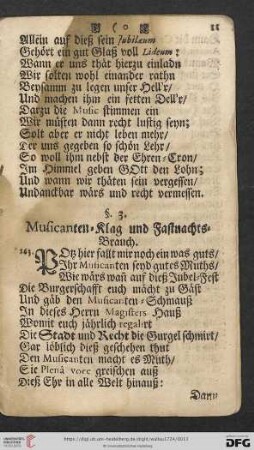 11
Allein auf dieß sein Jubilæum
Gehört ein gut Glaß voll Lideum:
Wann er uns thät hierzu einladn
Wir solten wohl einander rathn
Beysamm zu legen unser Hell'r/
Und machen ihn ein fetten Dell'r/
Darzu die Music stimmen ein
Wir müsten dann recht lustig seyn;
Solt aber er nicht leben mehr/
Der uns gegeben so schön Lehr/
So woll ihm nebst der Ehren-Cron/
Im Himmel geben GOtt den Lohn;
Und wann wir thäten sein vergessen/
Undanckbar wärs und recht vermessen.
§. 3.
Musicanten-Klag und Fastnachts-
Brauch.
POtz hier fallt mir noch ein was guts/
Ihr Musicanten seyd gutes Muths/
Wie wärs wañ auf dieß Jubel-Fest
Die Burgerschafft euch mächt zu Gäst
Und gäb den Musicanten-Schmauß
In dieses Herrn Magisters Hauß
Womit euch jährlich regalirt
Die Stadt und Recht die Gurgel schmirt/
Gar löblich dieß geschehen thut
Den Musicanten macht es Muth/
Sie Plenâ voce greischen auß
Dieß Ehr in alle Welt hinauß:
Dann
https://digi.ub.uni-heidelberg.de/diglit/walka1734/0013
© Universitätsbibliothek Heidelberg
Gefördert durch
DFG